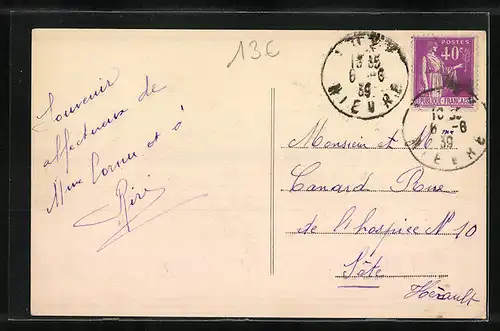 13€
Souvenir
affectueux de
Mme Cornu et
Riri
13 35
6 -6
39
NIEVRE
POSTES
40c
REPUBLIQUE FRANÇAISE
6 -6
39
NIEVRE
Monsieur et Mme
Canard Rue
de l'hospice N° 10
Sète
Hérault